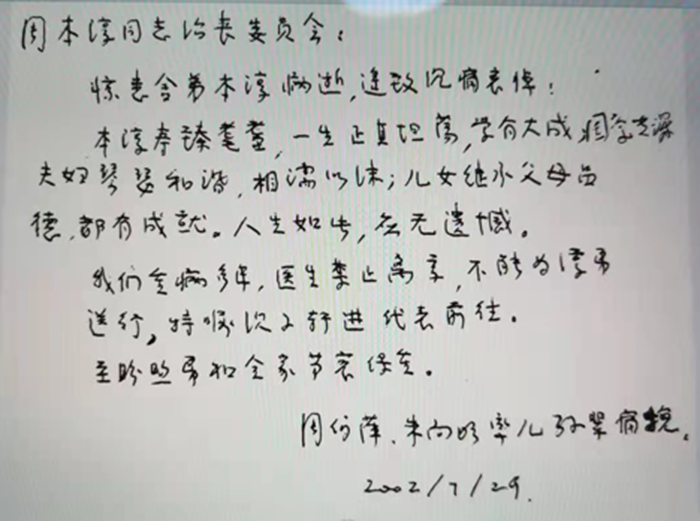 周本淳同志治丧委员会：
惊悉舍弟本淳病逝，遥致沉痛哀悼！
本淳寿臻耄耋，一生正直坦荡，学有大成
夫妇琴瑟和谐，相濡以沫；儿女继承父母品
德，都有成就。人生如此，应无遗憾。
我们全病多年，医生禁止离京，不能为淳弟
送行，特派次子轩进代表前往。
至盼 弟和全家节哀保重。
周伯萍、朱向明率儿孙辈痛挽。
2002/7/29.